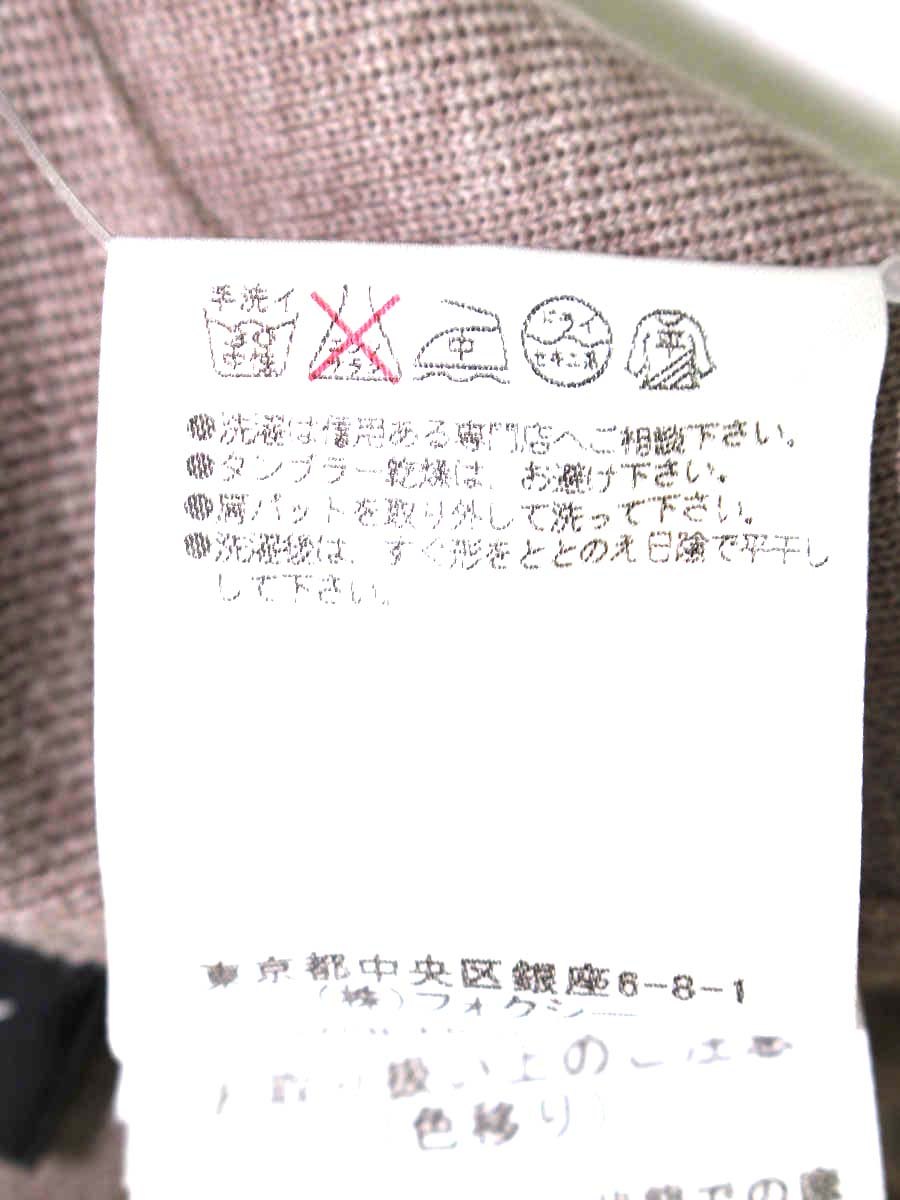 手洗イ
中性
エンソ
サラシ
中
ドライ
セキユ系
平
●洗濯は信用ある専門店へご相談下さい。
●タンブラー乾燥は、お避け下さい。
●肩パットを取り外して洗って下さい。
●洗濯後は、すぐ形をととのえ日陰で平干し
して下さい。
東京都中央区銀座6-8-1
(株)フォクシー
扱い上のご注意
(色移り)
での摩